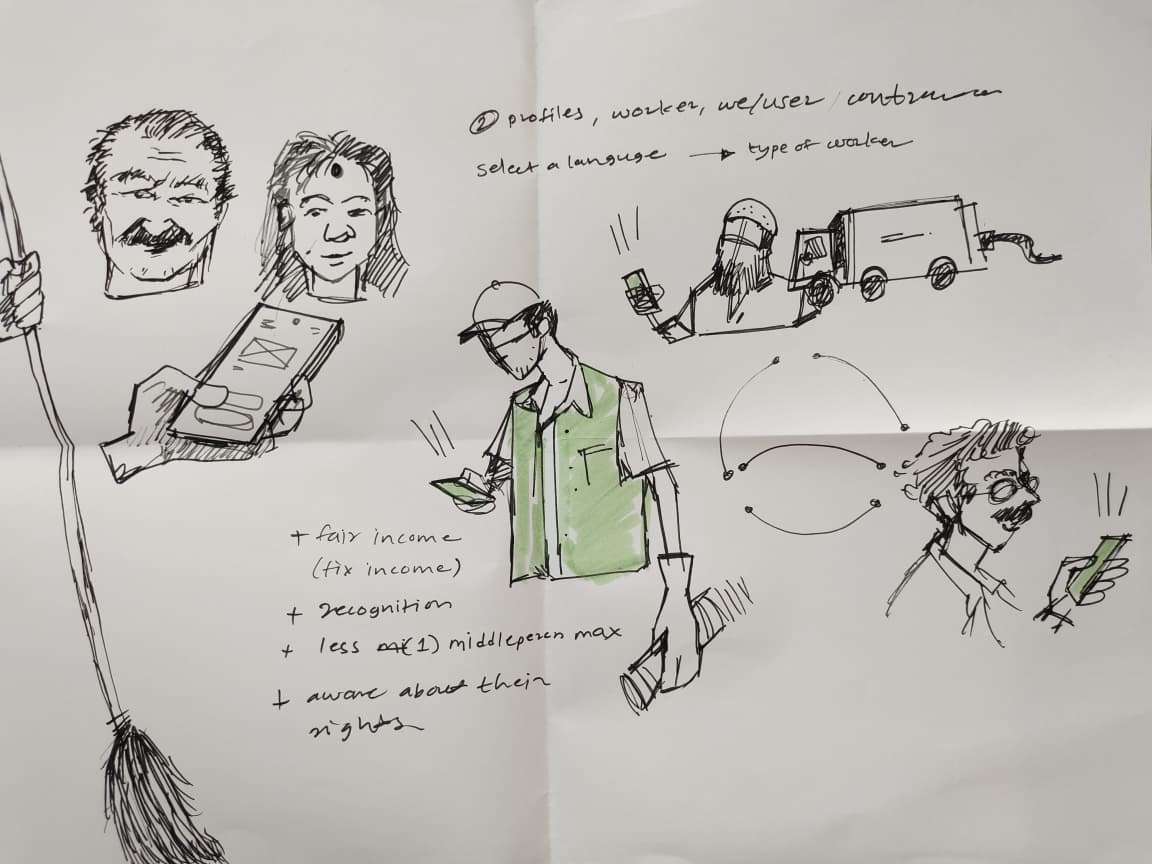 ② profiles, worker, we/user / 
select a languge → type of worker
+ fair income
(fix income)
+ recognition
+ less (1) middleperson max
+ aware about their
rights